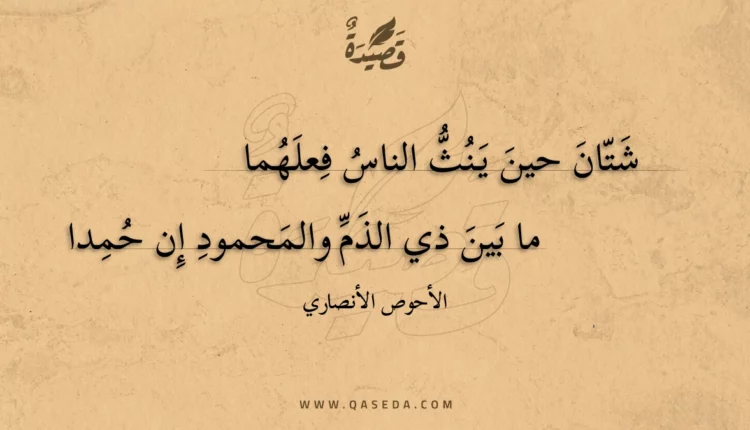 قَصِيْدَةٌ
شَتّانَ حينَ يَنُثُّ الناسُ فِعلَهُما
ما بَينَ ذي الذَمِّ والمَحمودِ إِن حُمِدا
الأحوص الأنصاري
WWW.QASEDA.COM